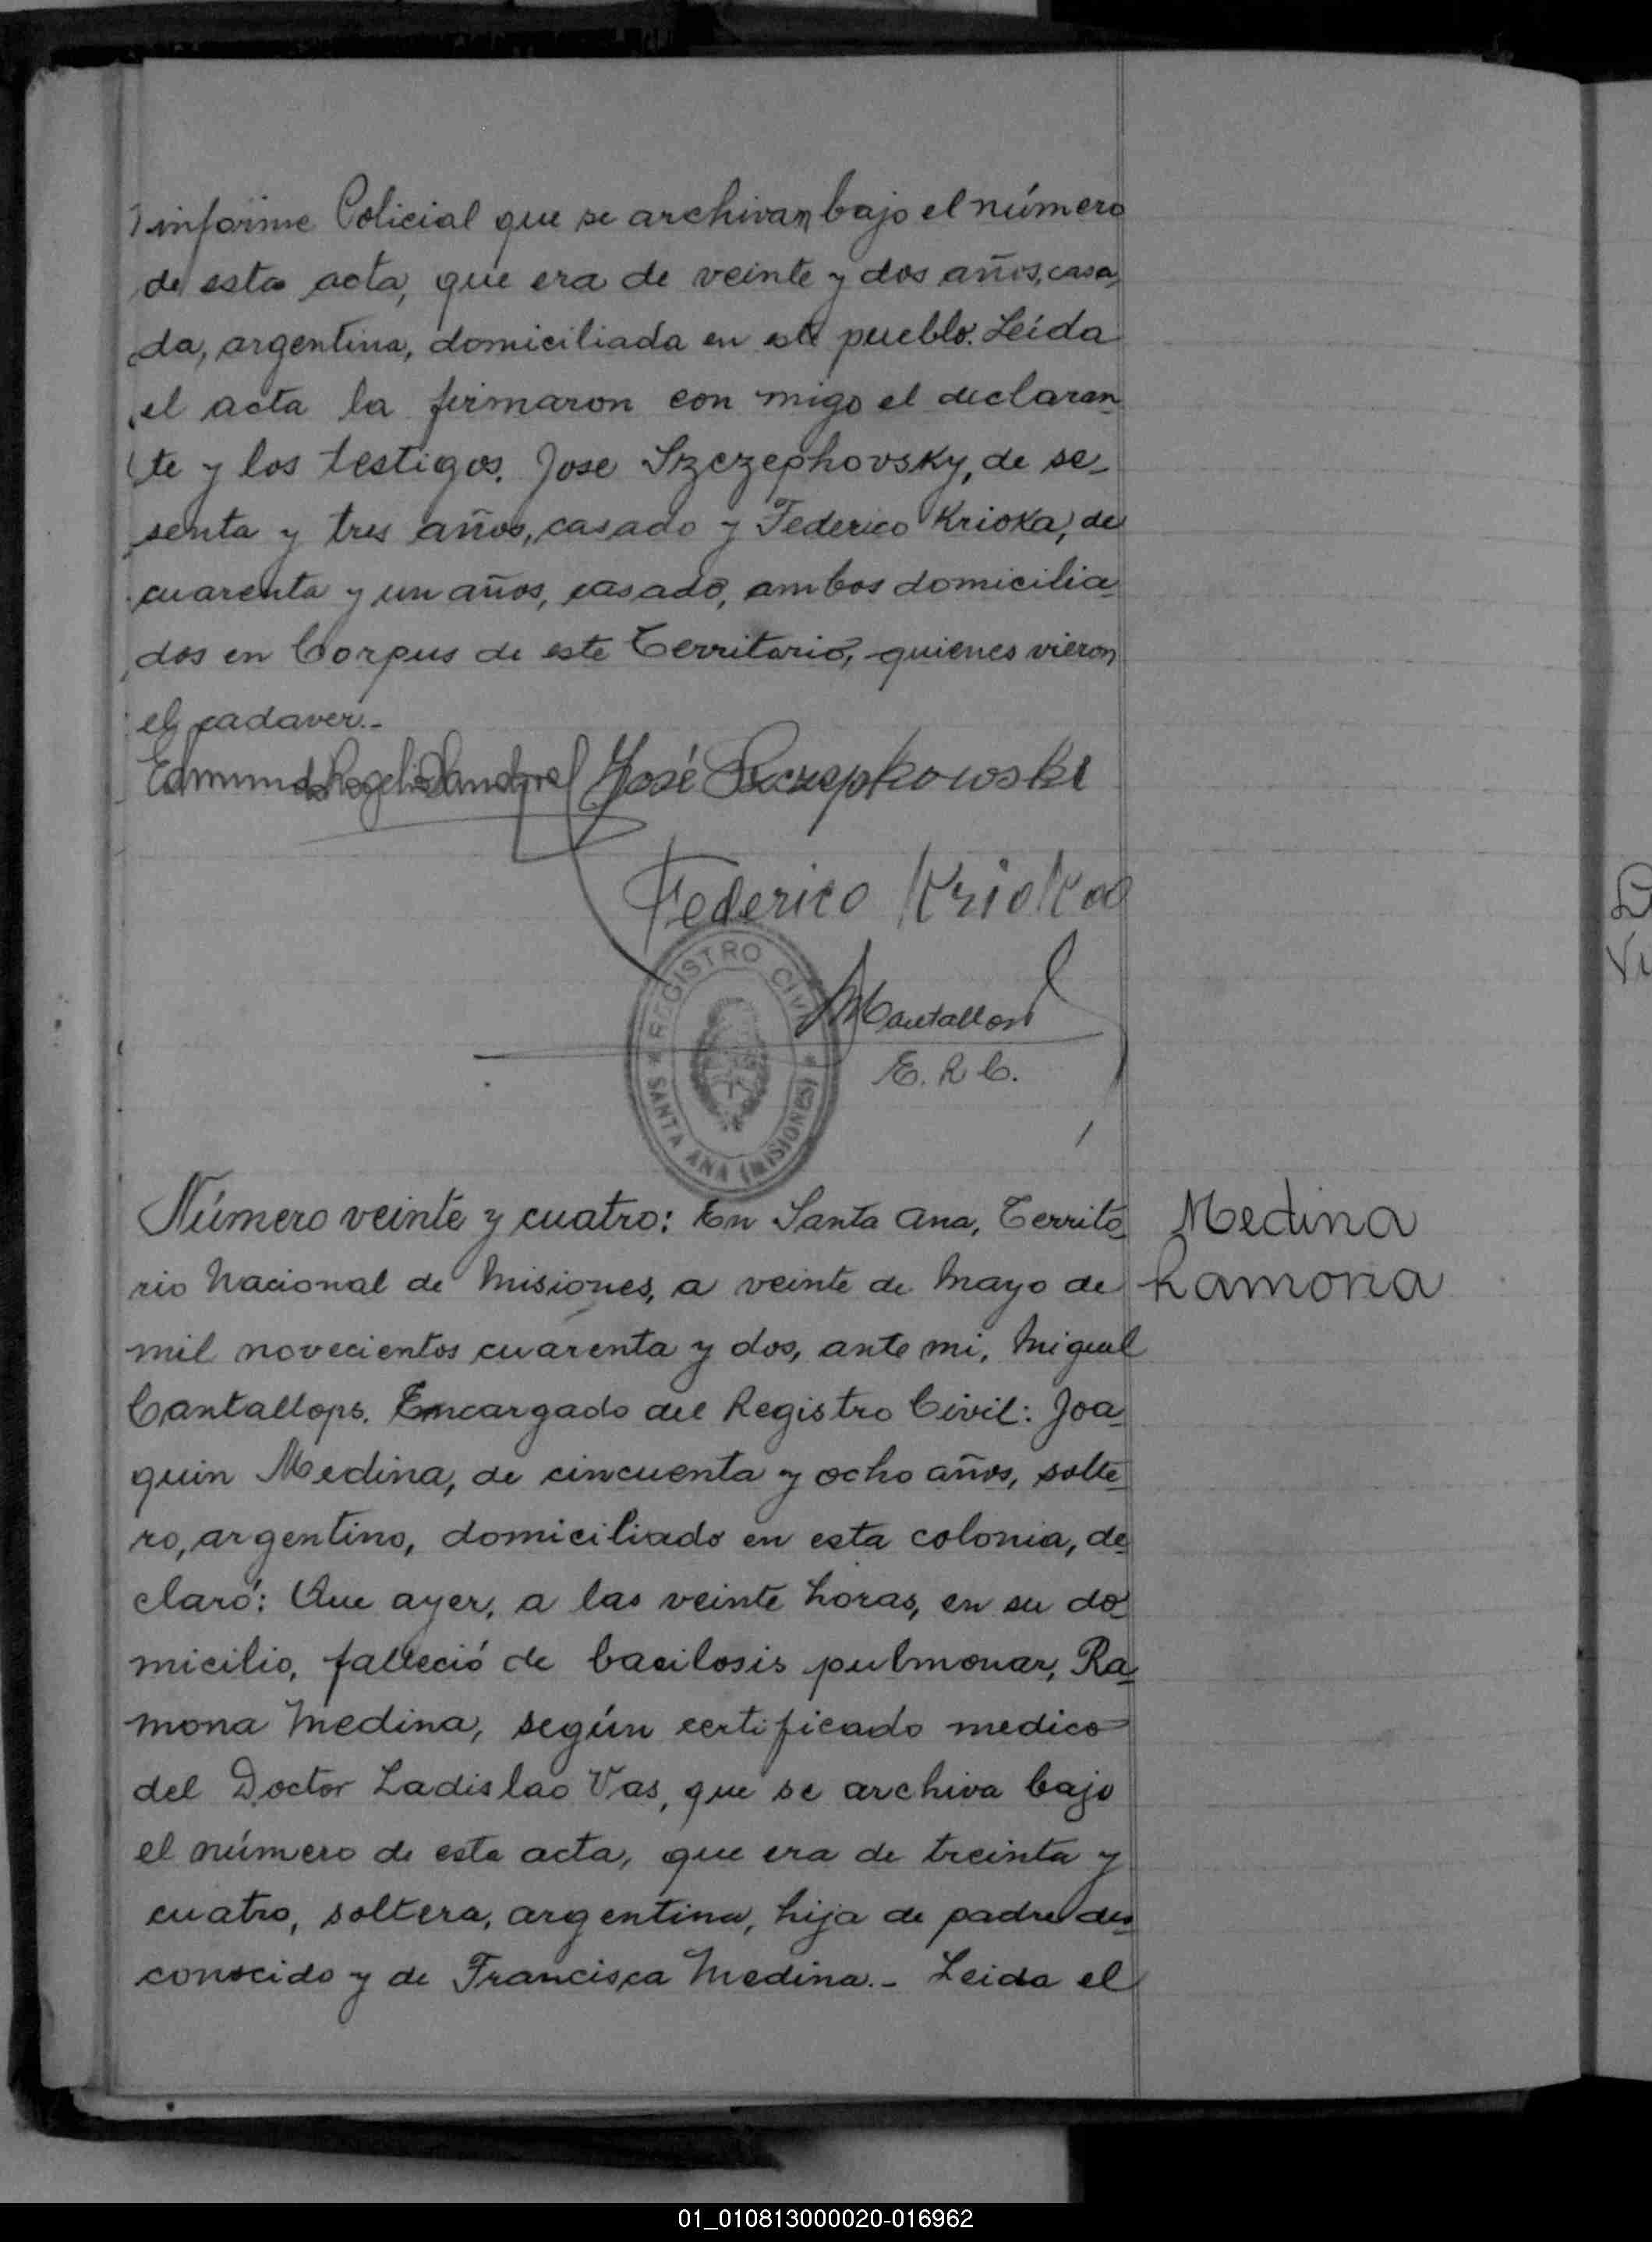 informe Policial que se archivan bajo el número
de esta acta, que era de veinte y dos años, casa,
da, argentina, domiciliada en este pueblo. Leída
el acta la firmaron con migo el declaran
te y los testigos. Jose Szczephovsky, de se-
senta y tres años, casado y Federico Krioka, de
cuarenta y un años, casado, ambos domicilia
dos en Corpus de este Territorio, quienes vieron
el cadaver.-
Edmundo Rogelio José Szczepkowski
Federico Krioka
REGISTRO CIVIL
SANTA ANA (MISIONES)
MCantallops
E. R C.
Número veinte y cuatro: En Santa Ana, Territo-
rio Nacional de Misiones, a veinte de Mayo de
mil novecientos cuarenta y dos, ante mi, Miguel
Cantallops. Encargado del Registro Civil: Joa-
quin Medina, de cincuenta y ocho años, solte-
ro, argentino, domiciliado en esta colonia, de-
claró: Que ayer, a las veinte horas, en su do-
micilio, falleció de bacilosis pulmonar, Ra-
mona Medina, según certificado medico
del Doctor Ladislao Vas, que se archiva bajo
el número de esta acta, que era de treinta y
cuatro, soltera, argentina, hija de padre des-
conocido y de Francisca Medina.- Leida el
Medina
Ramona
01_010813000020-016962